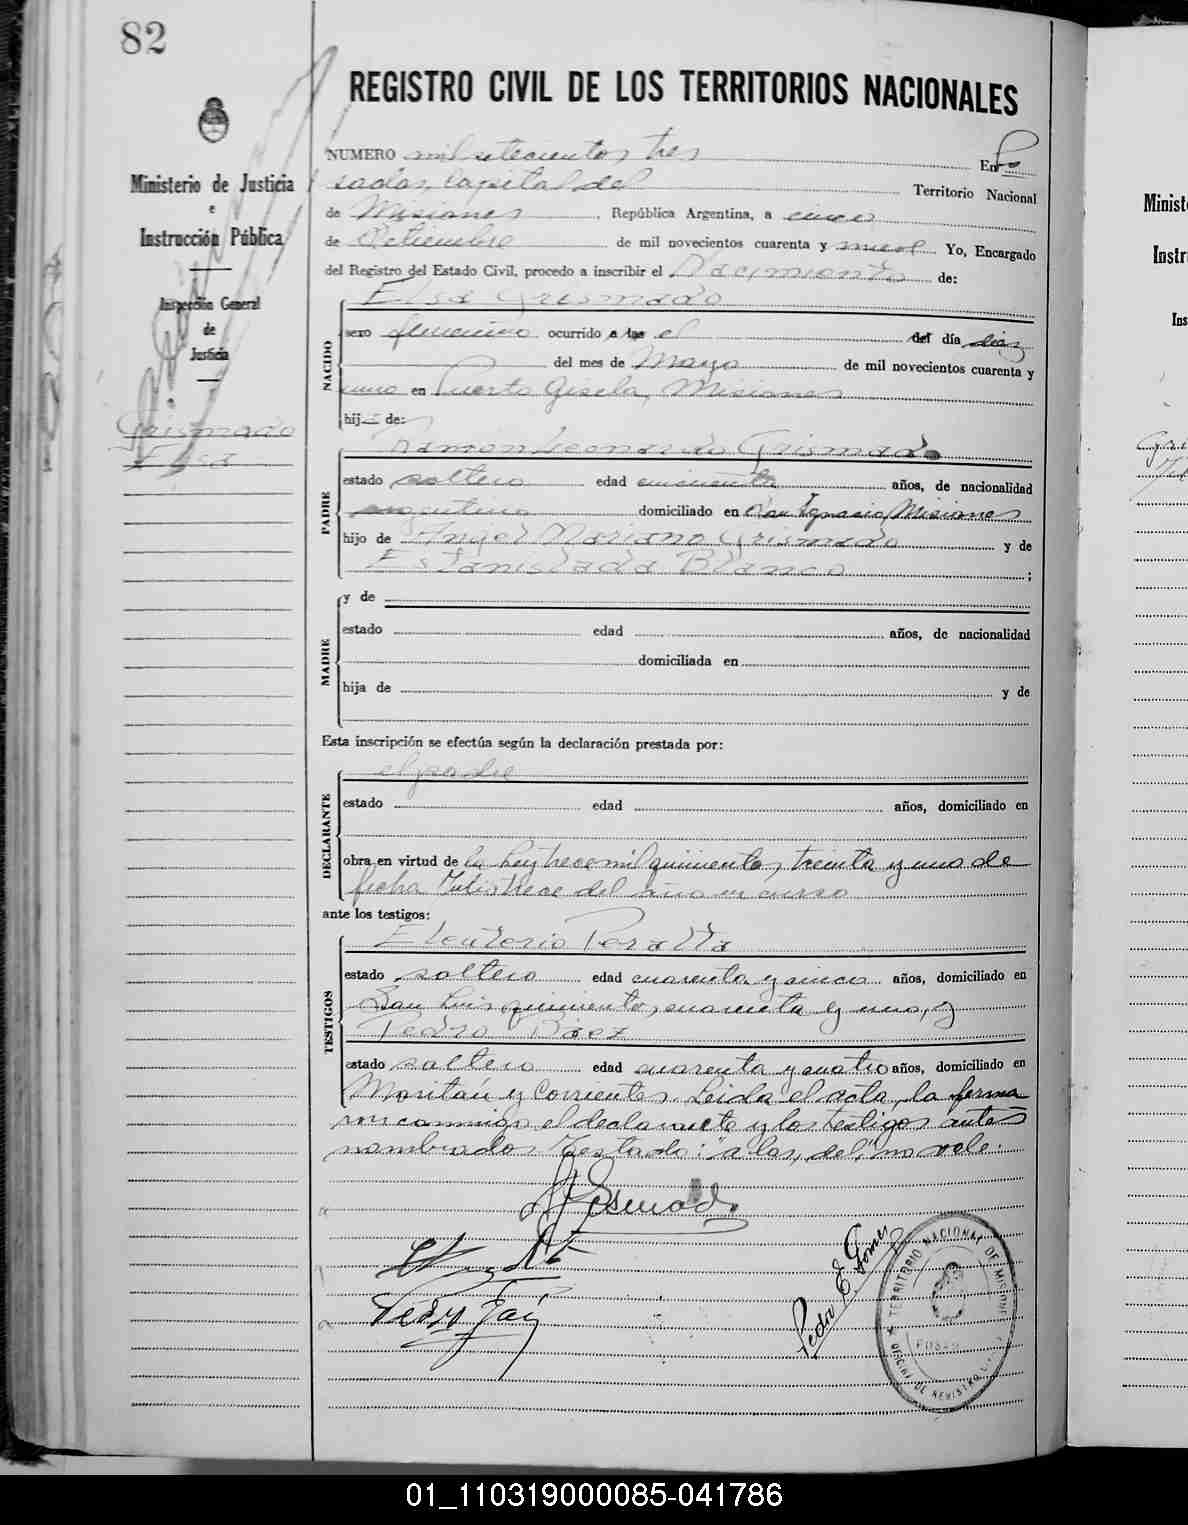 82
REGISTRO CIVIL DE LOS TERRITORIOS NACIONALES
Ministerio de Justicia
e
Instrucción Pública
Inspección General
de
Justicia
Grismado
Elsa
NUMERO mil setecientos tres En Po
sadas, Capital del Territorio Nacional
de Misiones República Argentina, a cinco
de Setiembre de mil novecientos cuarenta y nueve Yo, Encargado
del Registro del Estado Civil, procedo a inscribir el Nacimiento de:
NACIDO
Elsa Grismado
sexo femenino ocurrido a las el del día diez
del mes de Mayo de mil novecientos cuarenta y
uno en Puerto Gisela, Misiones
hij de:
PADRE
Ramón Leonardo Grismado
estado soltero edad cincuenta años, de nacionalidad
argentino domiciliado en San Ignacio, Misiones
hijo de Angel Mariano Grismado y de
Estanislada Blanco ;
MADRE
y de
estado edad años, de nacionalidad
domiciliada en
hija de y de
Esta inscripción se efectúa según la declaración prestada por:
DECLARANTE
el padre
estado edad años, domiciliado en
obra en virtud de la Ley trece mil quinientos treinta y uno de
fecha Julio trece del año en curso
ante los testigos:
TESTIGOS
Eleuterio Peralta
estado soltero edad cuarenta y cinco años, domiciliado en
San Luis quinientos cuarenta y uno, y
Pedro Báez
estado soltero edad cuarenta y cuatro años, domiciliado en
Moritán y Corrientes. Leída el acta, la firma
conmigo el declarante y los testigos antes
nombrados Testado: "a las, del," no vale.
Pedro E Gomez
TERRITORIO NACIONAL DE MISIONES
OFICINA DE REGISTRO
Minist
Instr
Ins
01_110319000085-041786